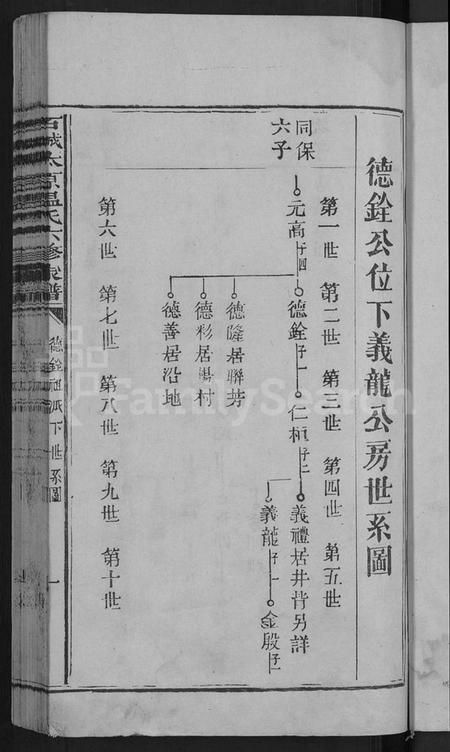 德銓公位下義龍公房世系圖
第一世 第二世 第三世 第四世 第五世
同保
六子
元高 子四
德銓 子一
仁桓 子二
義禮居井背另詳
義龍 子一
金殷 子一
德隆居聯芳
德彩居揚村
德善居沿地
第六世 第七世 第八世 第九世 第十世
石城太原溫氏六修族譜
德銓公派下世系圖
一
FamilySearch